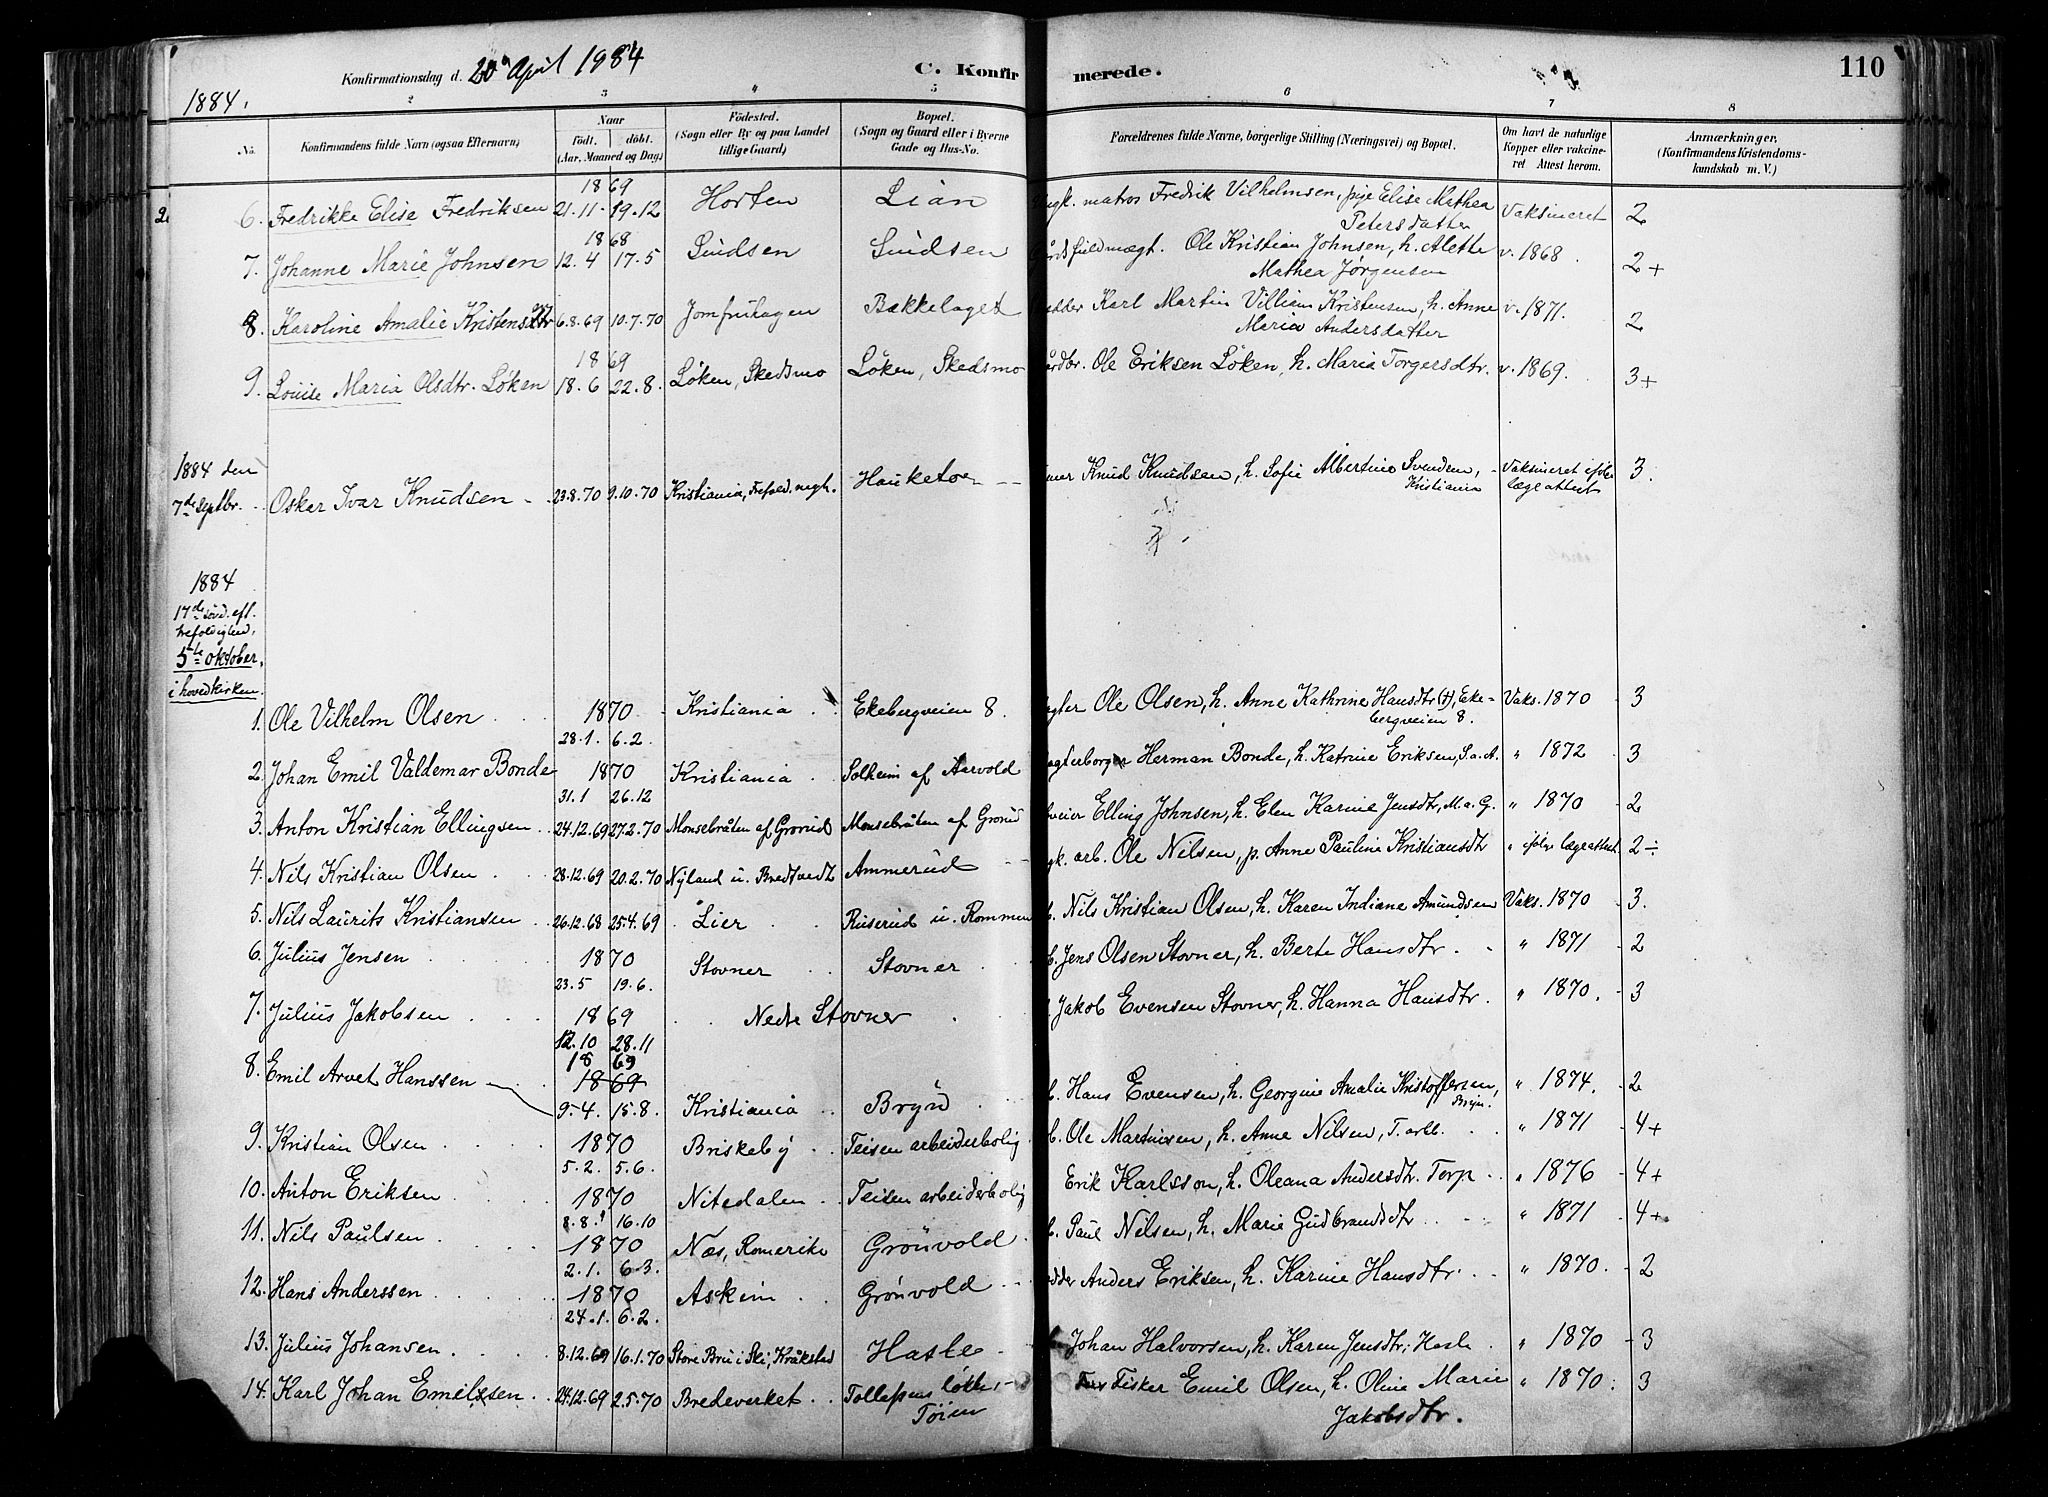 Konfirmationsdag d. 20de April 1984
C. Konfirmerede.
110
1884.
2 3 4 5 6 7 8
No. Konfirmandens fulde Navn (ogsaa Efternavn.) Naar født. døbt. (Aar, Maaned og Dag.) Fødested. (Sogn eller By og paa Landet tillige Gaard.) Bopæl. (Sogn og Gaard eller i Byerne Gade og Hus-No. Forældrenes fulde Navne, borgerlige Stilling (Næringsvei) og Bopæl. Om havt de naturlige Kopper eller vakcineret Attest herom. Anmærkninger. (Konfirmandens Kristendomskundskab m. V.)
2. 6. Fredrikke Elise Fredriksen 1869 21.11. 19.12 Horten Lian matros Fredrik Vilhelmsen, pige Elise Mathea Petersdatter Vaksineret 2
7. Johanne Marie Johnsen 1868 12.4 17.5 Sundsen Sundsen fuldmægt. Ole Kristian Johnsen, h. Alette Mathea Jørgensen v. 1868. 2+
8. Karoline Amalie 6.8.69 10.7.70 Jomfruhagen Bækkelaget Karl Martin Villiam Kristensen, h. Anne Maria Andersdatter v. 1871. 2
9. Louise Maria Olsdtr. Løken 1869 18.6 22.8. Løken, Skedsmo Løken, Skedsmo Ole Eriksen Løken, h. Maria Torgersdtr. v. 1869. 3+
1884 den
7de septbr. Oskar Ivar Knudsen 23.8.70 9.10.70 Kristiania, Trefold. mgh. Hauketoe Knud Knudsen, h. Sofie Albertine Svendsen, Kristiania Vaksineret ifølge lægeattest 3.
1884
17de sønd. eft.
trefoldighed.
5te oktober.
i hovedkirken.
1. Ole Vilhelm Olsen 1870 28.1. 6.2. Kristiania Ekebergveien 8. Ole Olsen, h. Anne Kathrine Hansdtr (†), Ekebergveien 8. Vaks. 1870 3
2. Johan Emil Valdemar Bonde 1870 31.1 26.12 Kristiania Solheim af Aarvold Herman Bonde, h. Katrine Eriksen, S. a. A. " 1872 3
3. Anton Kristian Ellingsen 24.12.69 27.2.70 Monsebråten af Grorud Monsebråten af Grorud Elling Johnsen, h. Elen Karine Jensdtr, M. a. G. " 1870 2
4. Nils Kristian Olsen 28.12.69 20.2.70 Nyland u. Bredtvedt Ammerud arb. Ole Nilsen, p. Anne Pauline Kristiansdtr " ifølge lægeattest 2÷
5. Nils Laurits Kristiansen 26.12.68 25.4.69 Lier Ruserud u. Rommen Nils Kristian Olsen, h. Karen Indiane Amundsen Vaks. 1870 3.
6. Julius Jensen 1870 23.5 19.6. Stovner Stovner Jens Olsen Stovner, h. Berte Hansdtr. " 1871 2
7. Julius Jakobsen 1869 12.10 28.11 Nedre Stovner Jakob Evensen Stovner, h. Hanna Hansdtr. " 1870. 3
8. Emil Arvet Hanssen 1869 1869 9.4. 15.8. Kristiania Bryn Hans Evensen, h. Georgine Amalie Kristoffersen, Bryn. " 1874. 2
9. Kristian Olsen 1870 5.2. 5.6. Briskeby Teisen arbeiderbolig Ole Martinsen, h. Anne Nilsen, T. arbb. " 1871 4+
10. Anton Eriksen 1870 8.8. 16.10 Nitedalen Teisen arbeiderbolig Erik Karlsson, h. Oleana Andersdtr. Torp " 1876 4+
11. Nils Paulsen 1870 2.1. 6.3. Næs, Romerike Grønvold Paul Nilsen, h. Marie Gudbrandsdtr " 1871 4+
12. Hans Anderssen 1870 24.1. 6.2. Askim Grønvold Anders Eriksen, h. Karine Hansdtr. " 1870. 2
13. Julius Johansen 8.12.69 16.1.70 Store Bru i Ski, Kråkstad Hasle Johan Halvorsen, h. Karen Jensdtr; Hasle " 1870 3
14. Karl Johan Emilsen 24.12.69 2.5.70 Bredeverket Tollefsens løkke, Tøien Fisker Emil Olsen, h. Oline Marie Jakobsdtr. " 1870. 3